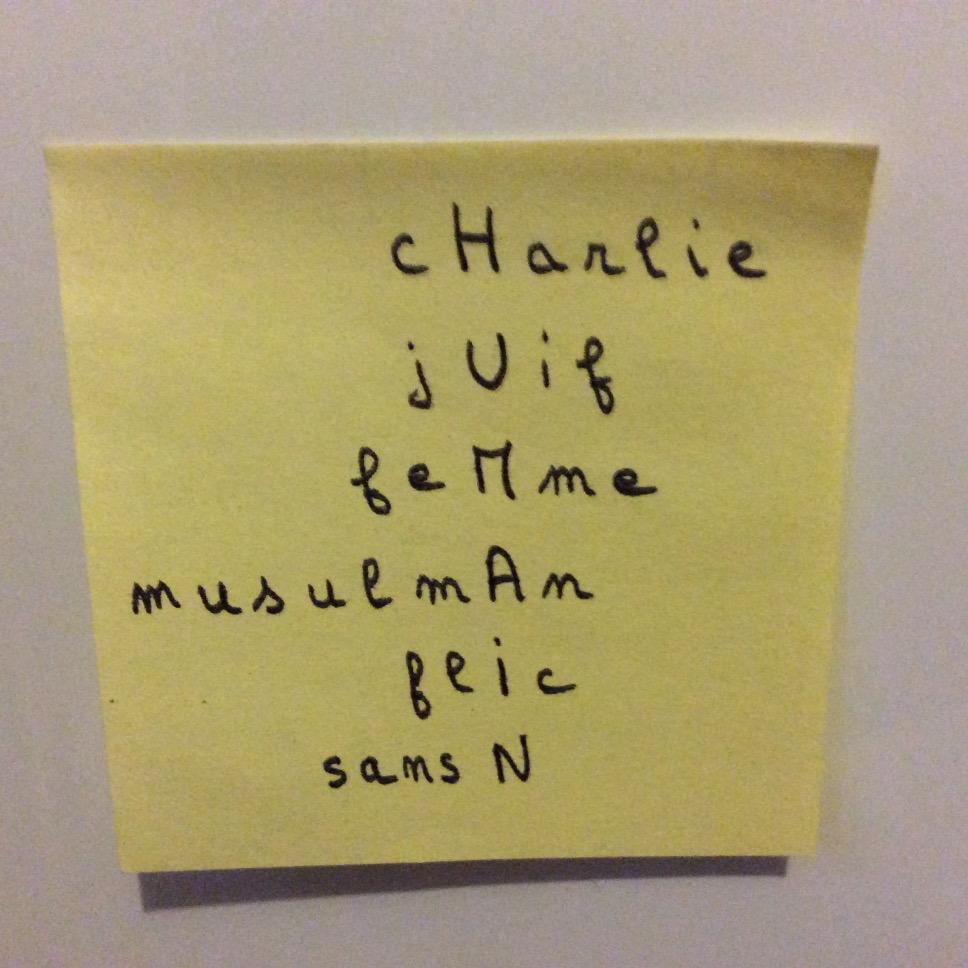 cHarlie
jUif
feMme
musulmAn
flic
sans N